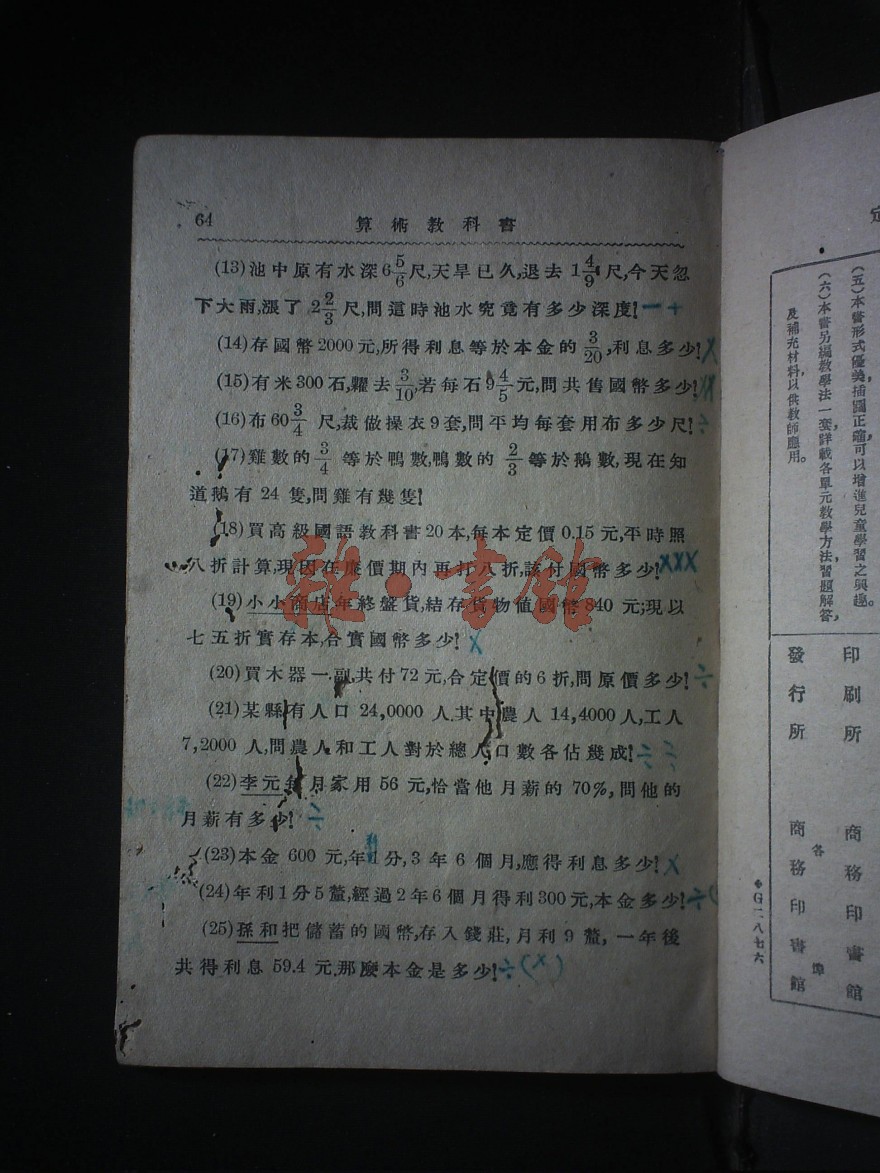 64
算術教科書
(13)池中原有水深6 5/6尺,天旱已久,退去 1 4/9 尺,今天忽
下大雨,漲了 2 2/3 尺,問這時池水究竟有多少深度?
(14)存國幣2000元,所得利息等於本金的 3/20,利息多少?
(15)有米300石,糶去3/10,若每石9 4/5元,問共售國幣多少?
(16)布60 3/4 尺,裁做操衣9套,問平均每套用布多少尺?
(17)雞數的 3/4 等於鴨數,鴨數的 2/3 等於鵝數,現在知
道鵝有 24 隻,問雞有幾隻?
(18)買高級國語教科書20本,每本定價 0.15 元,平時照
八折計算,現因在廉價期內再打八折,該付國幣多少?
(19)小小商店年終盤貨,結存貨物值國幣840 元;現以
七五折實存本,合實國幣多少?
(20)買木器一副,共付72元,合定價的6折,問原價多少?
(21)某縣有人口 24,0000 人,其中農人 14,4000人,工人
7,2000 人,問農人和工人對於總人口數各佔幾成?
(22)李元每月家用 56 元,恰當他月薪的 70%,問他的
月薪有多少?
(23)本金 600 元,年1分,3年6個月,應得利息多少?
(24)年利1分5釐,經過2年6個月得利300元,本金多少?
(25)孫和把儲蓄的國幣,存入錢莊,月利9釐,一年後
共得利息 59.4 元,那麼本金是多少?
雜·書館
(五)本書形式優美,插圖正確,可以增進兒童學習之興趣。
(六)本書另編教學法一套,詳載各單元教學方法,習題解答,
及補充材料,以供教師應用。
印刷所 商務印書館
發行所 各埠 商務印書館
G二八七六